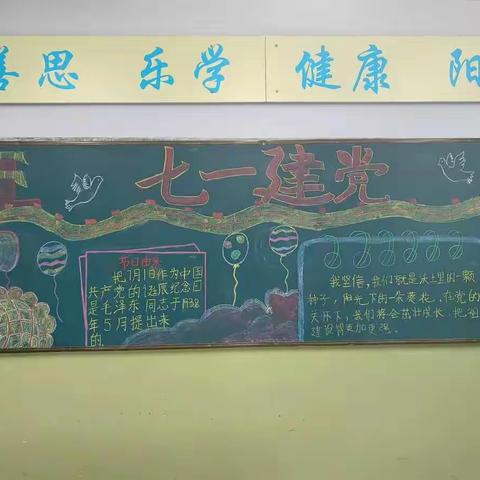 善思 乐学 健康 阳
七一建党
节日由来
把7月1日作为中国
共产党的诞辰纪念日
是毛泽东同志于1938
年5月提出来
的
我坚信，我们就是沃土里的一颗
种子，阳光下的一朵葵花。在党的
关怀下，我们将会茁壮成长，把祖
建设得更加更强。